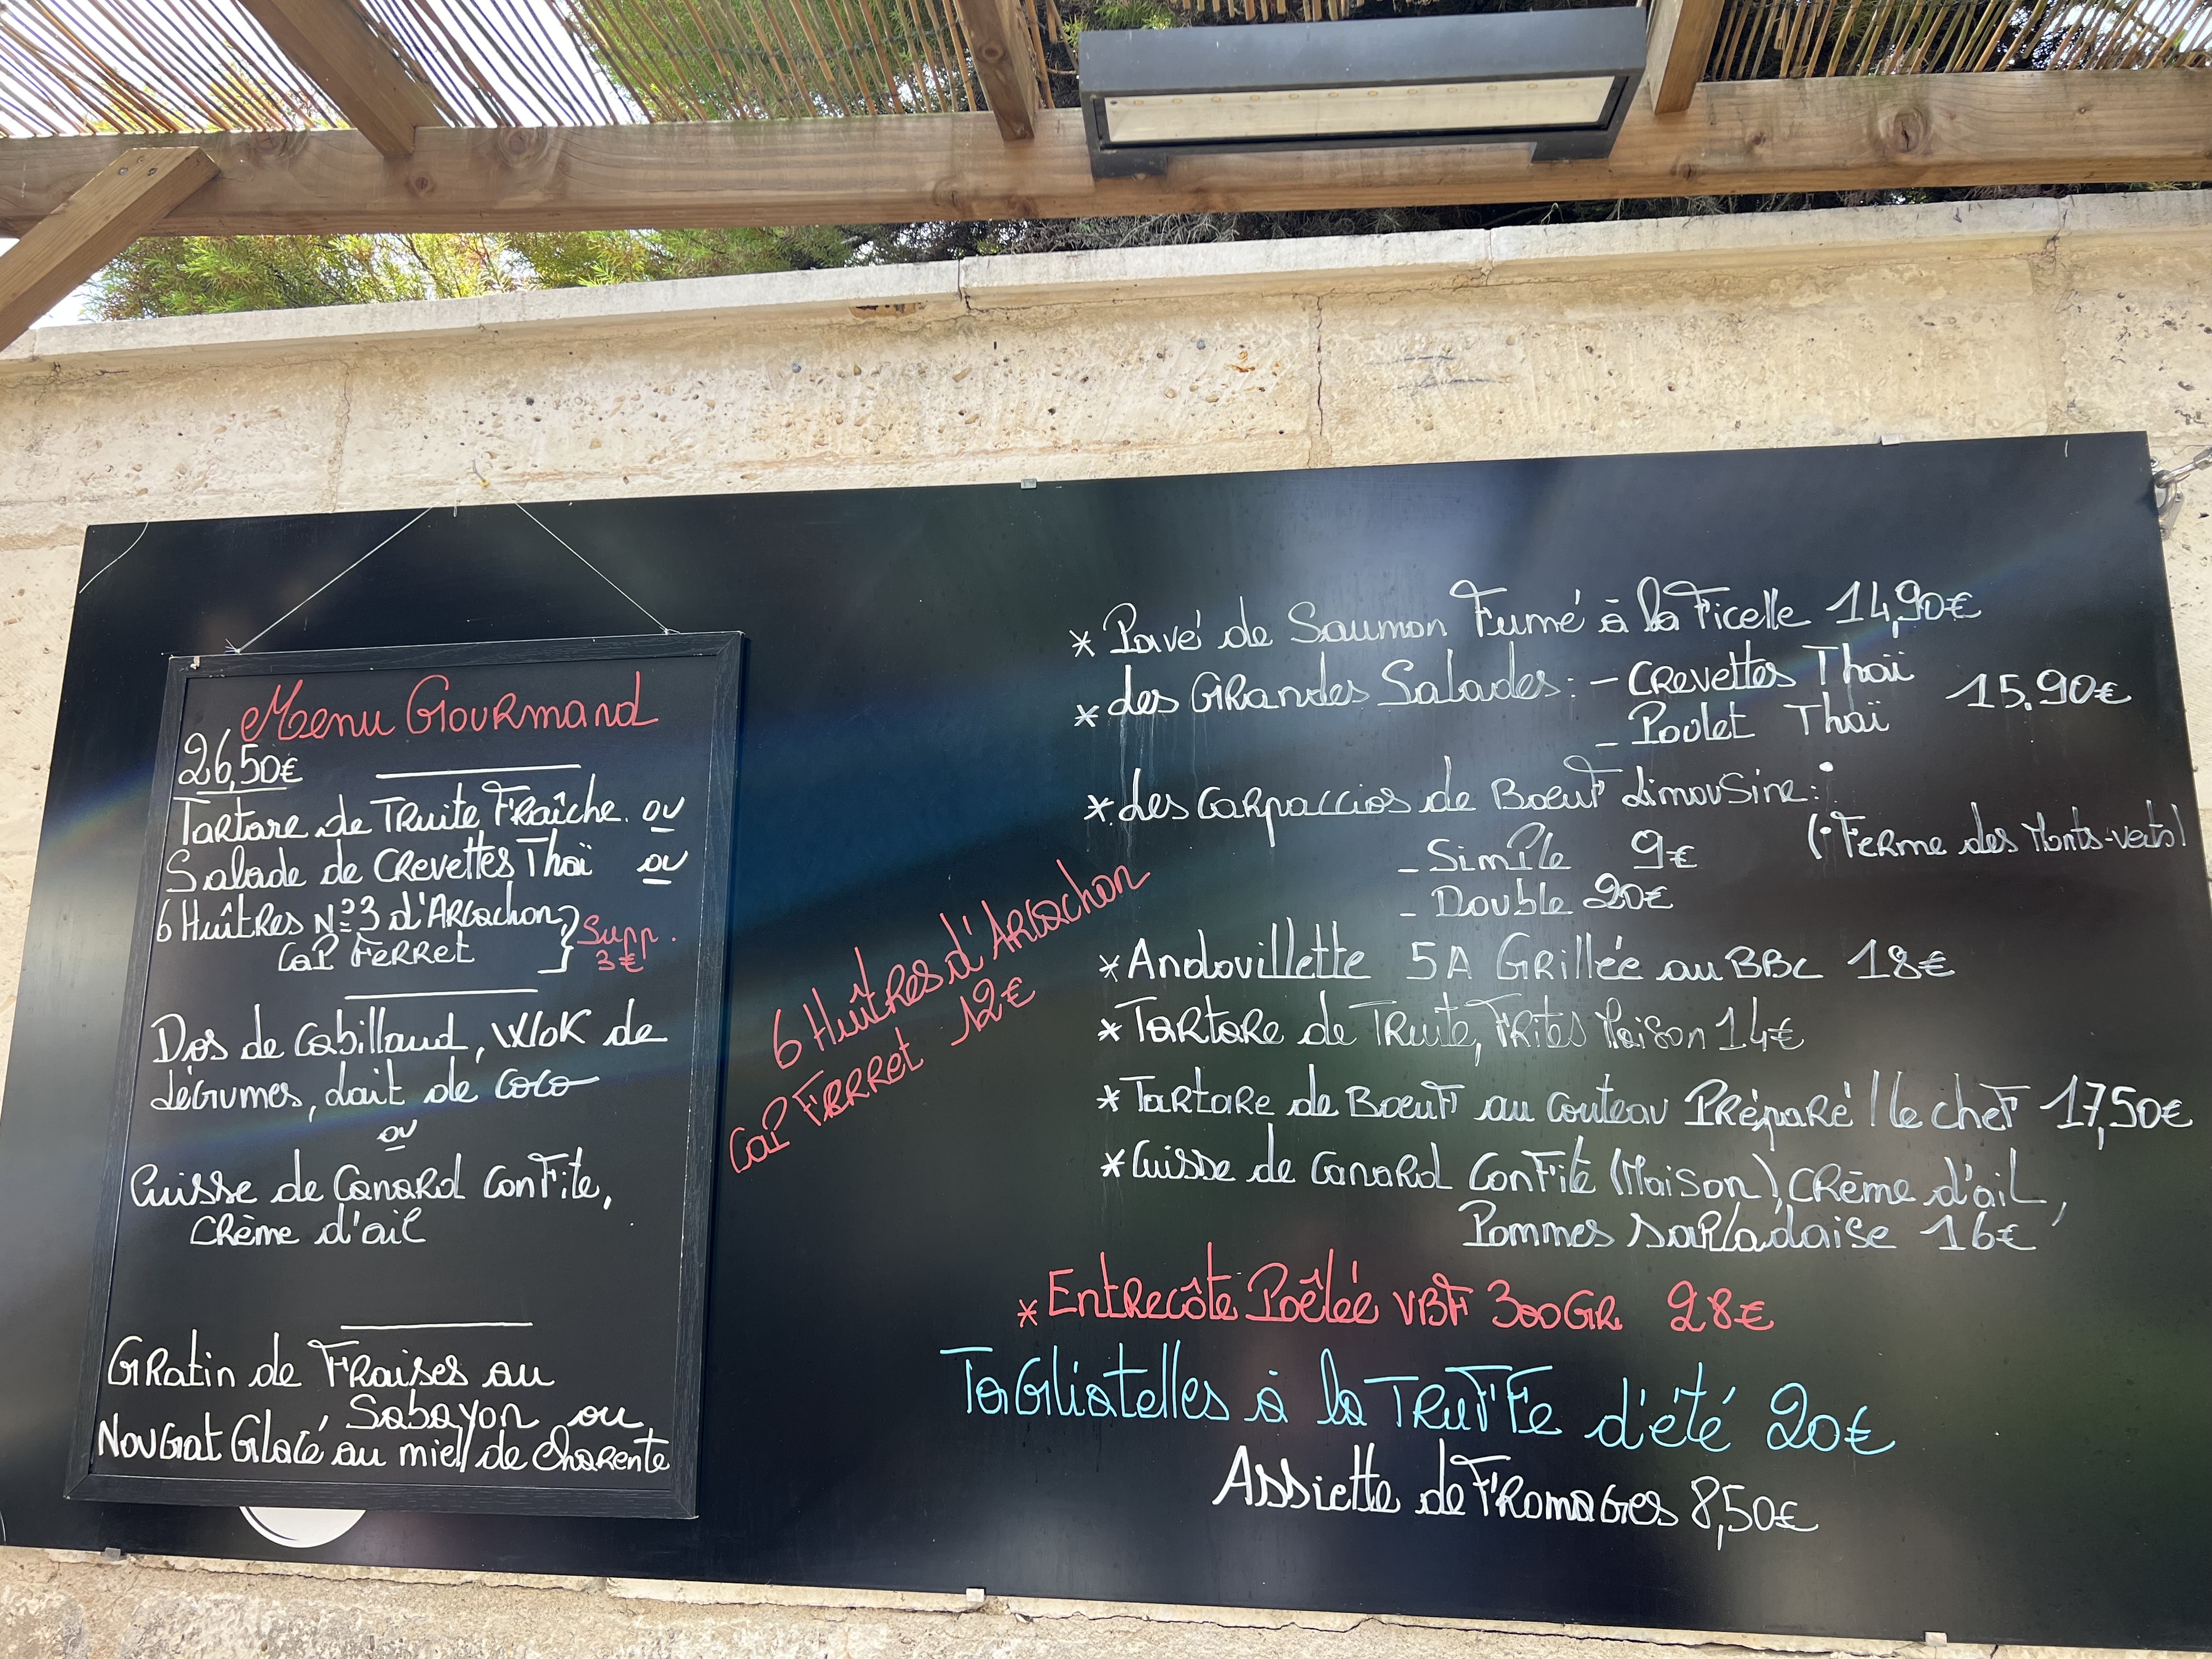 Menu Gourmand
26,50€
Tartare de Truite Fraîche ou
Salade de Crevettes Thaï ou
6 Huîtres N°3 d'Arcachon
Cap Ferret
Supp.
3€
Dos de Cabillaud, Wok de
légumes, lait de coco
ou
Cuisse de Canard Confite,
Crème d'ail
Gratin de Fraises au
Sabayon ou
Nougat Glacé au miel de Charente
6 Huîtres d'Arcachon
Cap Ferret 12€
* Pavé de Saumon Fumé à la Ficelle 14,90€
* des Grandes Salades : - Crevettes Thaï
- Poulet Thaï 15.90€
* des Carpaccios de Boeuf Limousine :
(• Ferme des Monts-verts)
- Simple 9€
- Double 20€
* Andouillette 5A Grillée au BBC 18€
* Tartare de Truite, Frites Maison 14€
* Tartare de Boeuf au couteau Préparé / le chef 17,50€
* Cuisse de Canard Confite (Maison), Crème d'ail,
Pommes sarladaise 16€
* Entrecôte Poêlée VBF 300Gr. 28€
Tagliatelles à la Truffe d'été 20€
Assiette de Fromages 8,50€